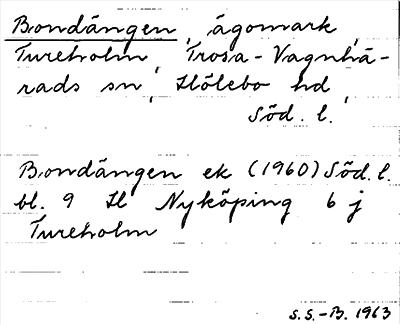 Bondängen, ägomark,
Tureholm, Trosa-Vagnhä-
rads sn, Hölebo hd,
Söd. l.
Bondängen ek (1960) Söd. l.
bl. 9 Il Nyköping 6 j
Tureholm
S.S.-B. 1963